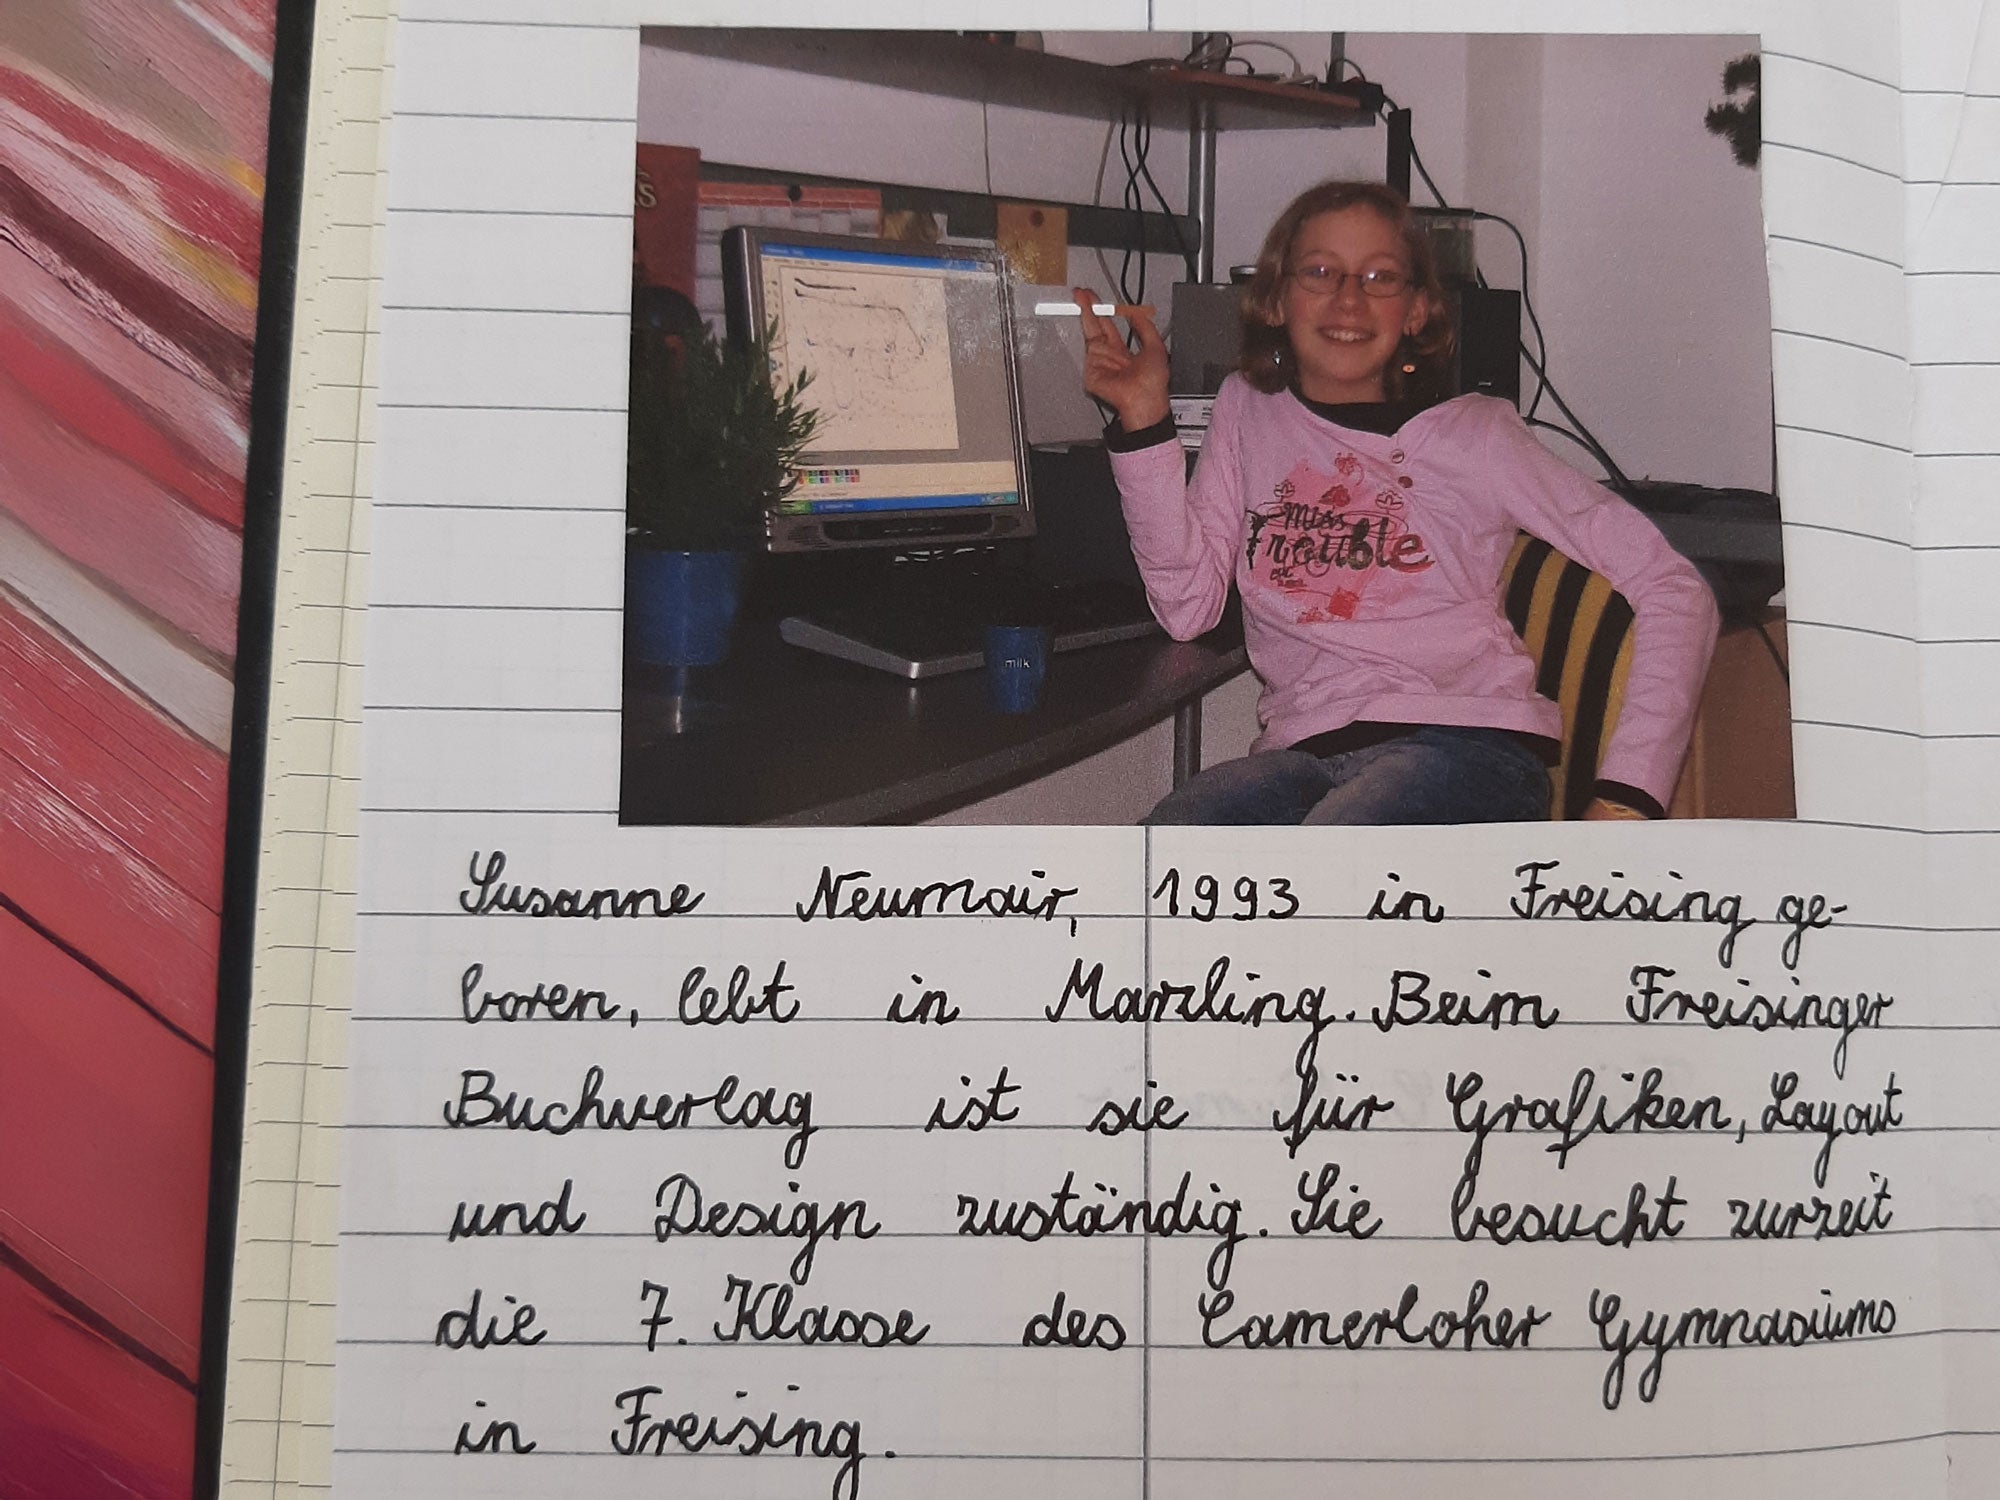 miss
Trouble
milk
Susanne Neumair, 1993 in Freising ge-
boren, lebt in Marzling. Beim Freisinger
Buchverlag ist sie für Grafiken, Layout
und Design zuständig. Sie besucht zurzeit
die 7. Klasse des Camerloher Gymnasiums
in Freising.